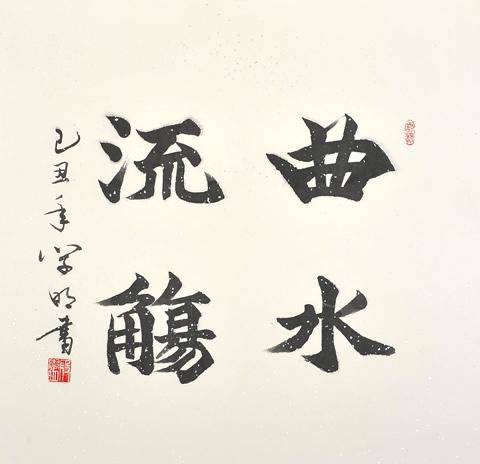 曲水
流觴
己丑年学明書